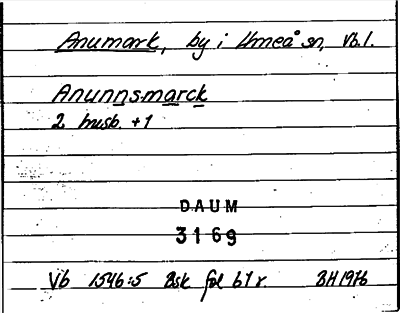 Anumark, by i Umeå sn, Vb.l.
Anunnsmarck
2 husb. + 1
DAUM
3169
Vb 1546:5 Bsk fol 61 r. BH 1976